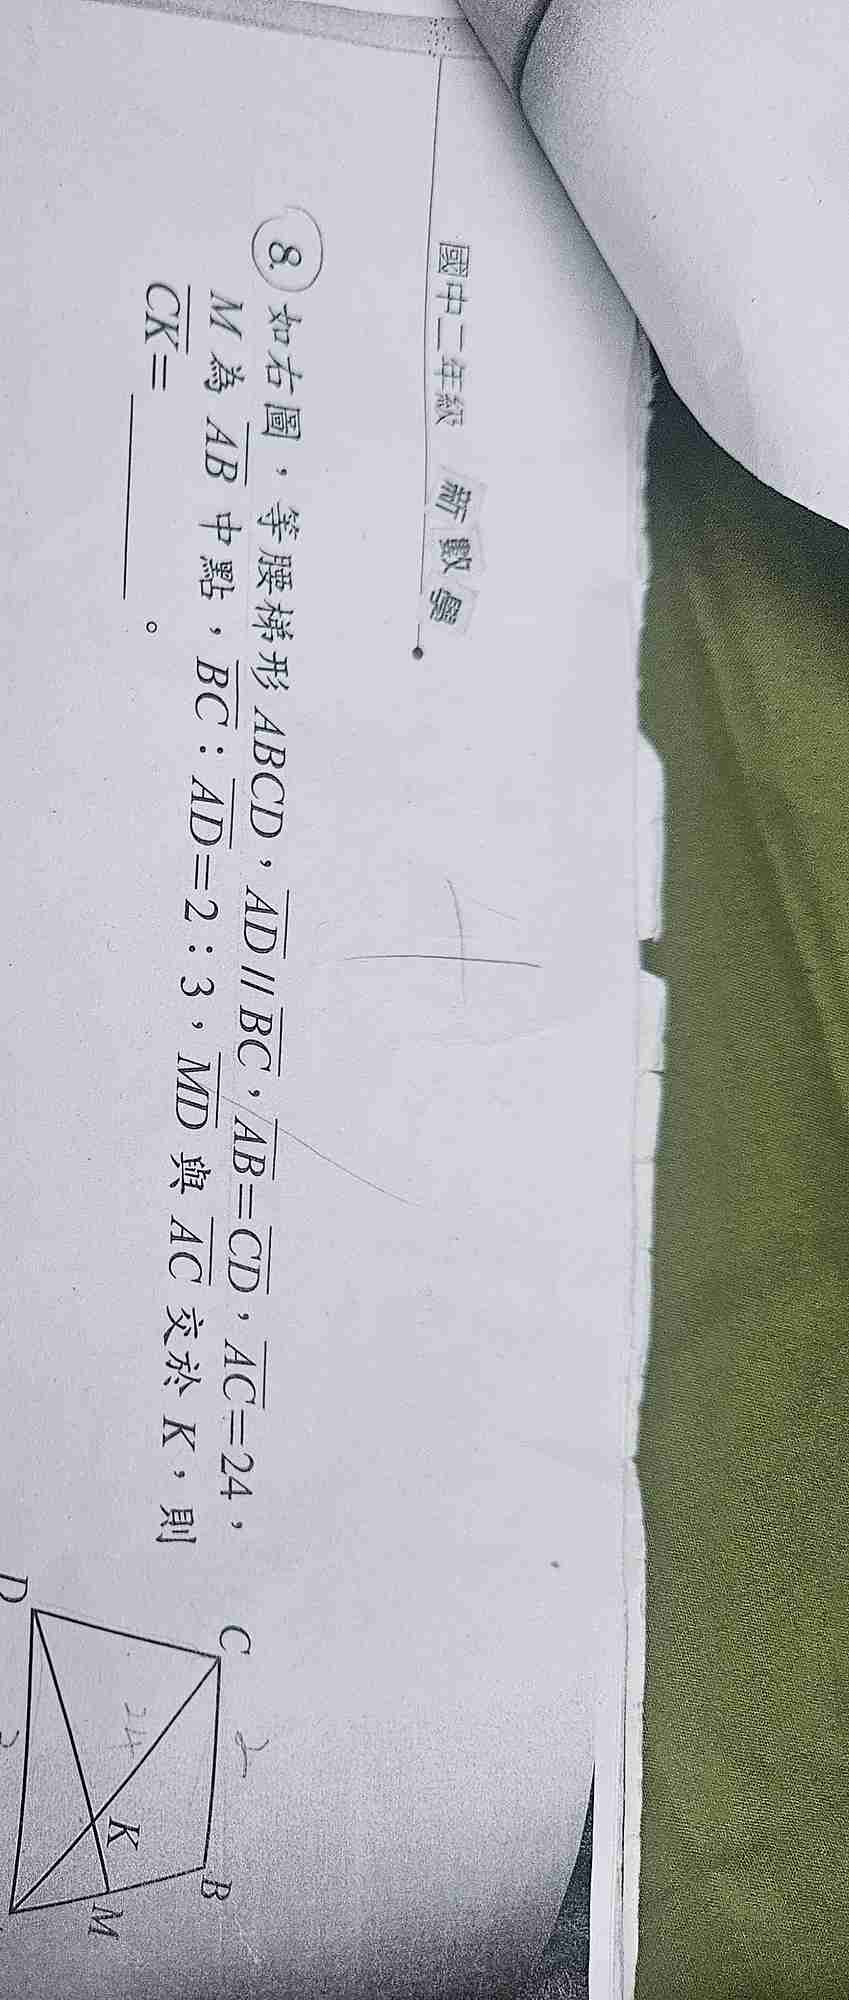 國中二年級 新數學
8. 如右圖，等腰梯形 ABCD，AD // BC，AB = CD，AC = 24，
M 為 AB 中點，BC：AD = 2：3，MD 與 AC 交於 K，則
CK = ______。
C
2
B
K
M
24
D